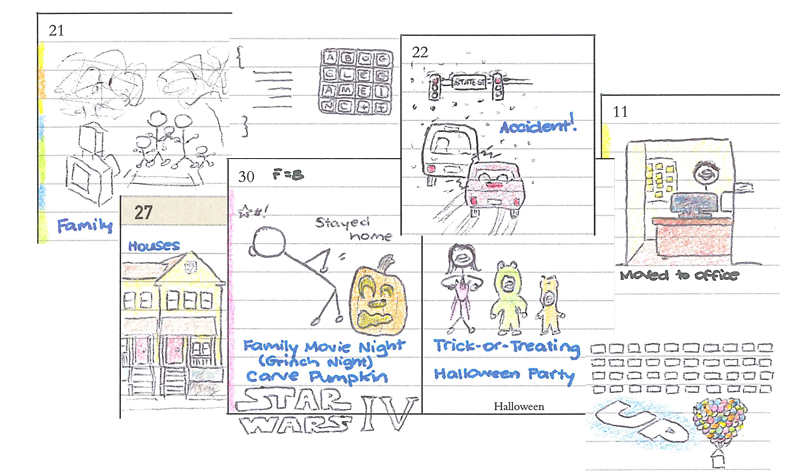 21
Family
{
}
A B C G
C L E S
A M E I
N C + +
22
STATE ST
Accident!
11
Moved to office
27
Houses
30
F=B
☆#!
Stayed
home
Family Movie Night
(Grinch Night)
Carve Pumpkin
STAR
WARS IV
Trick-or-Treating
Halloween Party
Halloween
UP